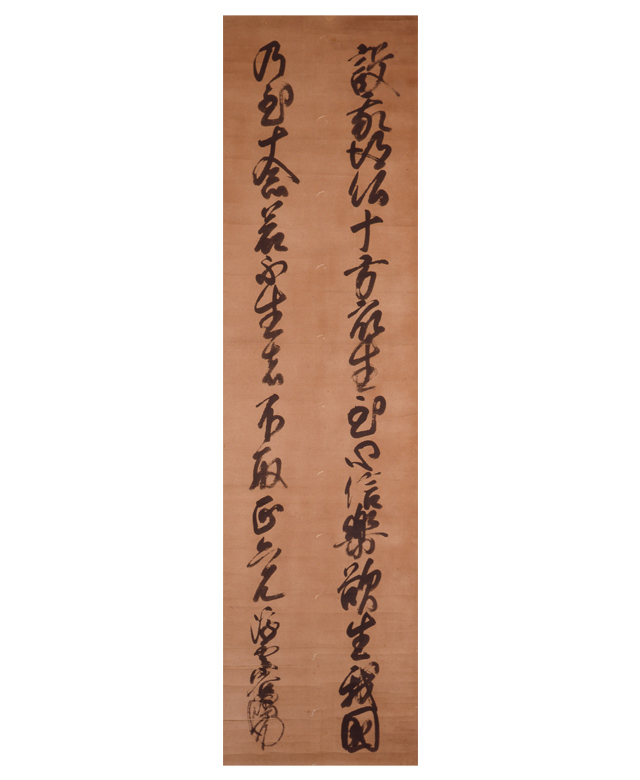 設我得仏十方衆生至心信楽欲生我國
乃至十念若不生者不取正覚